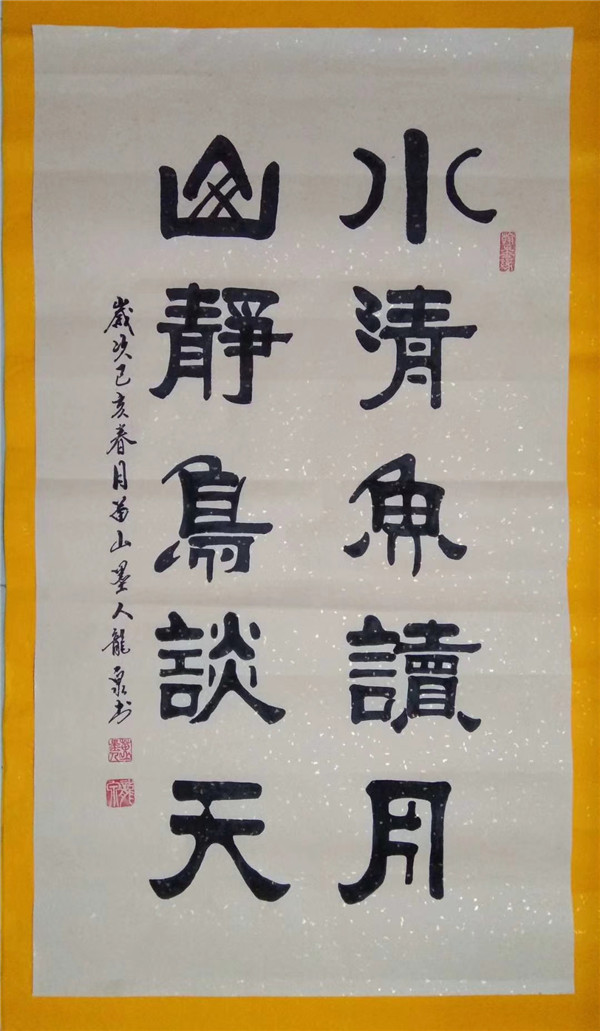 水清魚讀月
山靜鳥談天
歲次己亥春月苗山墨人龍泉書